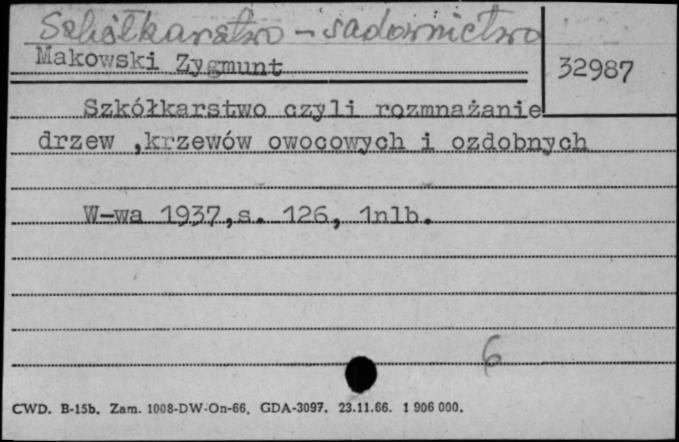 Szkółkarstwo - sadownictwo
Makowski Zygmunt
32987
Szkółkarstwo czyli rozmnażanie
drzew ,krzewów owocowych i ozdobnych
W-wa 1937,s. 126, 1nlb.
6
CWD. B-15b. Zam. 1008-DW-On-66. GDA-3097. 23.11.66. 1 906 000.